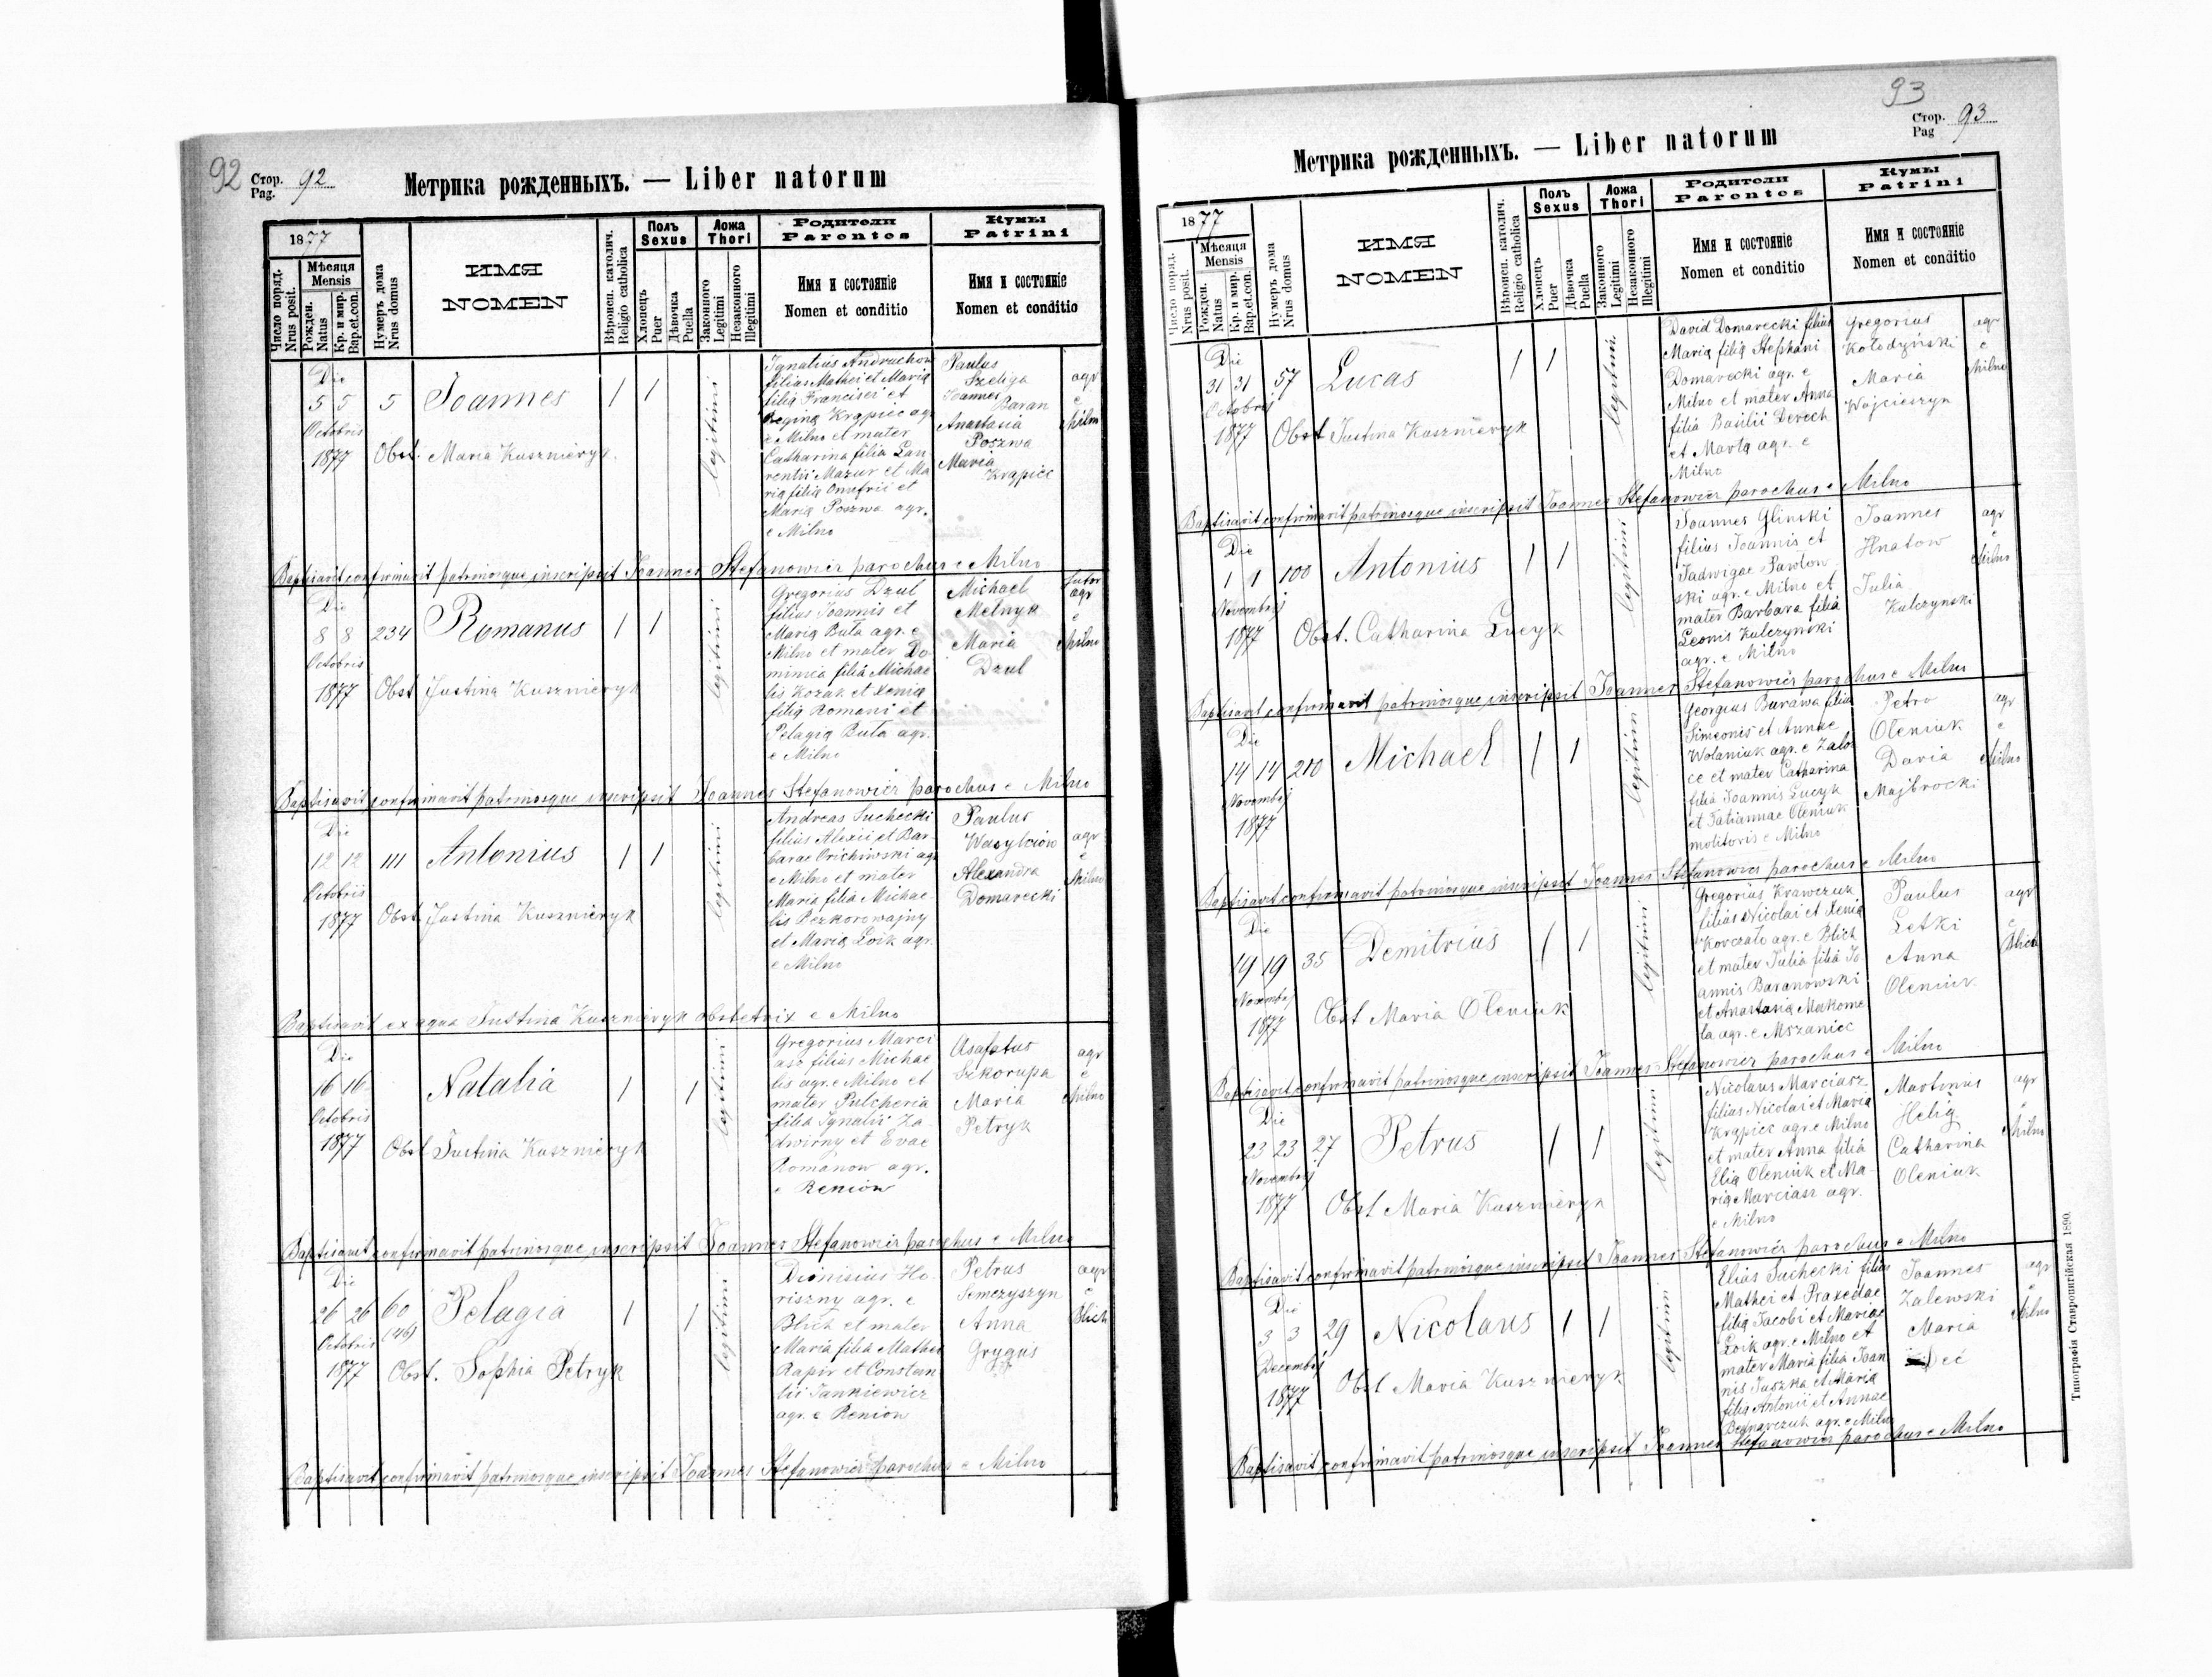 92
Стор. 92
Pag.
Метрика рожденныхъ. — Liber natorum
1877
Число поряд.
Nrus posit.
Мѣсяця
Mensis
Рожден.
Natus
Кр. и мир.
Bap.et.con.
Нумеръ дома
Nrus domus
ИМЯ
NOMEN
Вѣроисп. католич.
Religio catholica
Полъ
Sexus
Хлопецъ
Puer
Дѣвочка
Puella
Ложа
Thori
Законного
Legitimi
Незаконного
Illegitimi
Родители
Parentes
Имя и состояніе
Nomen et conditio
Кумы
Patrini
Имя и состояніе
Nomen et conditio
Die
5 5 5 Joannes 1 1
Octobris
1877 Obst. Maria Kusznieryk
legitimi
Ignatius Andruchow
filius Mathei et Maria
filia Francisci et
Regina Krąpiec agr
e Milno et mater
Catharina filia Lau
rentii Mazur et Ma
ria filia Onufrii et
Maria Poszwa agr.
e Milno
Paulus
Szeliga
Joannes
Baran
Anastasia
Poszwa
Maria
Krąpiec
agr
e
Milno
Baptisavit confirmavit patrinosque inscripsit Joannes Stefanowicz parochus e Milno
Die
8 8 234 Romanus 1 1
Octobris
1877 Obst Justina Kusznieryk
legitimi
Gregorius Dzul
filius Joannis et
Maria Buta agr. e
Milno et mater Do
minica filia Michae
lis Kozak et Xenia
filia Romani et
Pelagia Buta agr.
e Milno
Michael
Melnyk
Maria
Dzul
sutor
agr
e
Milno
Baptisavit confirmavit patrinosque inscripsit Joannes Stefanowicz parochus e Milno
Die
12 12 111 Antonius 1 1
Octobris
1877 Obst. Justina Kusznieryk
legitimi
Andreas Suchecki
filius Alexii et Bar
barae Orichiwski agr
e Milno et mater
Maria filia Michae
lis Perkorowajny
et Maria Łoik agr.
e Milno
Paulus
Wasylciów
Alexandra
Domarecki
agr
e
Milno
Baptisavit ex aqua Justina Kusznieryk obstetrix e Milno
Die
16 16 Natalia 1 1
Octobris
1877 Obst Justina Kusznieryk
legitimi
Gregorius Marci
asz filius Michae
lis agr. e Milno et
mater Pulcheria
filia Ignatii Za
dwirny et Evae
Romanow agr.
e Reniow
Asaftus
Szkorupa
Maria
Petryk
agr
e
Milno
Baptisavit confirmavit patrinosque inscripsit Joannes Stefanowicz parochus e Milno
Die
26 26 60 Pelagia 1 1
Octobris (46)
1877 Obst. Sophia Petryk
legitimi
Dionisius Ho
riszny agr. e
Blich et mater
Maria filia Mathei
Rapir et Constan
tii Jankiewicz
agr. e Reniow
Petrus
Semczyszyn
Anna
Gryguś
agr
e
Blich
Baptisavit confirmavit patrinosque inscripsit Joannes Stefanowicz parochus e Milno
93
Стор. 93
Pag
Метрика рожденныхъ. — Liber natorum
1877
Число поряд.
Nrus posit.
Мѣсяця
Mensis
Рожден.
Natus
Кр. и мир.
Bap.et.con.
Нумеръ дома
Nrus domus
ИМЯ
NOMEN
Вѣроисп. католич.
Religio catholica
Полъ
Sexus
Хлопецъ
Puer
Дѣвочка
Puella
Ложа
Thori
Законного
Legitimi
Незаконного
Illegitimi
Родители
Parentes
Имя и состояніе
Nomen et conditio
Кумы
Patrini
Имя и состояніе
Nomen et conditio
Die
31 31 57 Lucas 1 1
Octobris
1877 Obst Justina Kusznieryk
legitimi
David Domarecki filius
Maria filia Stephani
Domarecki agr. e
Milno et mater Anna
filia Basilii Derech
et Marta agr. e
Milno
Gregorius
Kołodyński
Maria
Wojcieszyn
agr
e
Milno
Baptisavit confirmavit patrinosque inscripsit Joannes Stefanowicz parochus e Milno
Die
1 1 100 Antonius 1 1
Novembris
1877 Obst. Catharina Łucyk
legitimi
Joannes Glinski
filius Joannis et
Jadwigae Pawlow
ski agr. e Milno et
mater Barbara filia
Leonis Kulczynski
agr. e Milno
Joannes
Hnatow
Julia
Kulczynski
agr
e
Milno
Baptisavit confirmavit patrinosque inscripsit Joannes Stefanowicz parochus e Milno
Die
14 14 210 Michael 1 1
Novembris
1877
legitimi
Georgius Burawa filius
Simeonis et Annae
Wolaniuk agr. e Zało
ce et mater Catharina
filia Joannis Łucyk
et Tatiannae Oleniuk
molitoris e Milno
Petro
Oleniuk
Daria
Majbrocki
agr
e
Milno
Baptisavit confirmavit patrinosque inscripsit Joannes Stefanowicz parochus e Milno
Die
19 19 35 Demitrius 1 1
Novembris
1877 Obst Maria Oleniuk
legitimi
Gregorius Krawczuk
filius Nicolai et Xenia
Korczało agr. e Blich
et mater Julia filia Jo
annis Baranowski
et Anastasia Makome
la agr. e Mszaniec
Paulus
Letki
Anna
Oleniuk
agr
e
Blich
Baptisavit confirmavit patrinosque inscripsit Joannes Stefanowicz parochus e Milno
Die
23 23 27 Petrus 1 1
Novembris
1877 Obst Maria Kusznieryk
legitimi
Nicolaus Marciasz
filius Nicolai et Maria
Krąpiec agr. e Milno
et mater Anna filia
Elia Oleniuk et Ma
ria Marciasz agr.
e Milno
Martinus
Helig
Catharina
Oleniuk
agr
e
Milno
Baptisavit confirmavit patrinosque inscripsit Joannes Stefanowicz parochus e Milno
Die
3 3 29 Nicolaus 1 1
Decembris
1877 Obst Maria Kusznieryk
legitimi
Elias Suchecki filius
Mathei et Praxedae
filia Jacobi et Mariae
Łoik agr. e Milno et
mater Maria filia Joan
nis Juszka et Maria
filia Antonii et Annae
Bednarczuk agr. e Milno
Joannes
Zalewski
Maria
Deć
agr
e
Milno
Baptisavit confirmavit patrinosque inscripsit Joannes Stefanowicz parochus e Milno
Типографія Ставропигійская 1890.